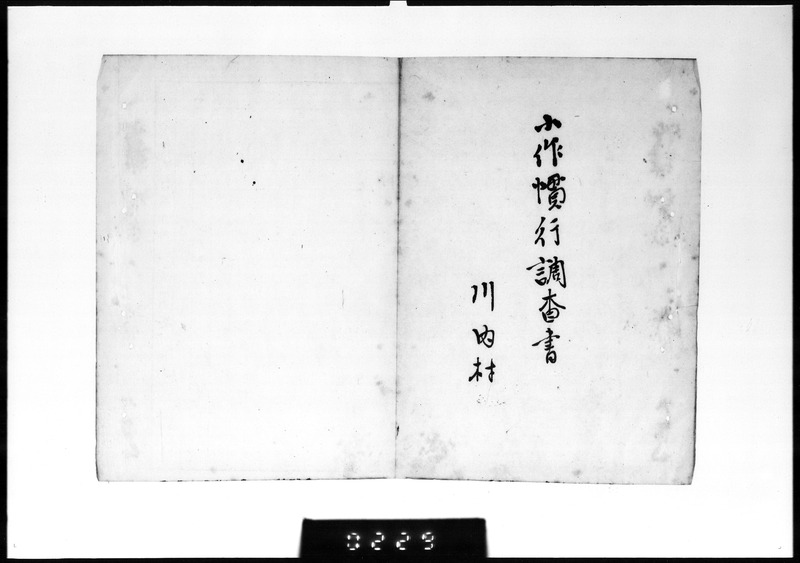 小作慣行調査書
川内村
0229